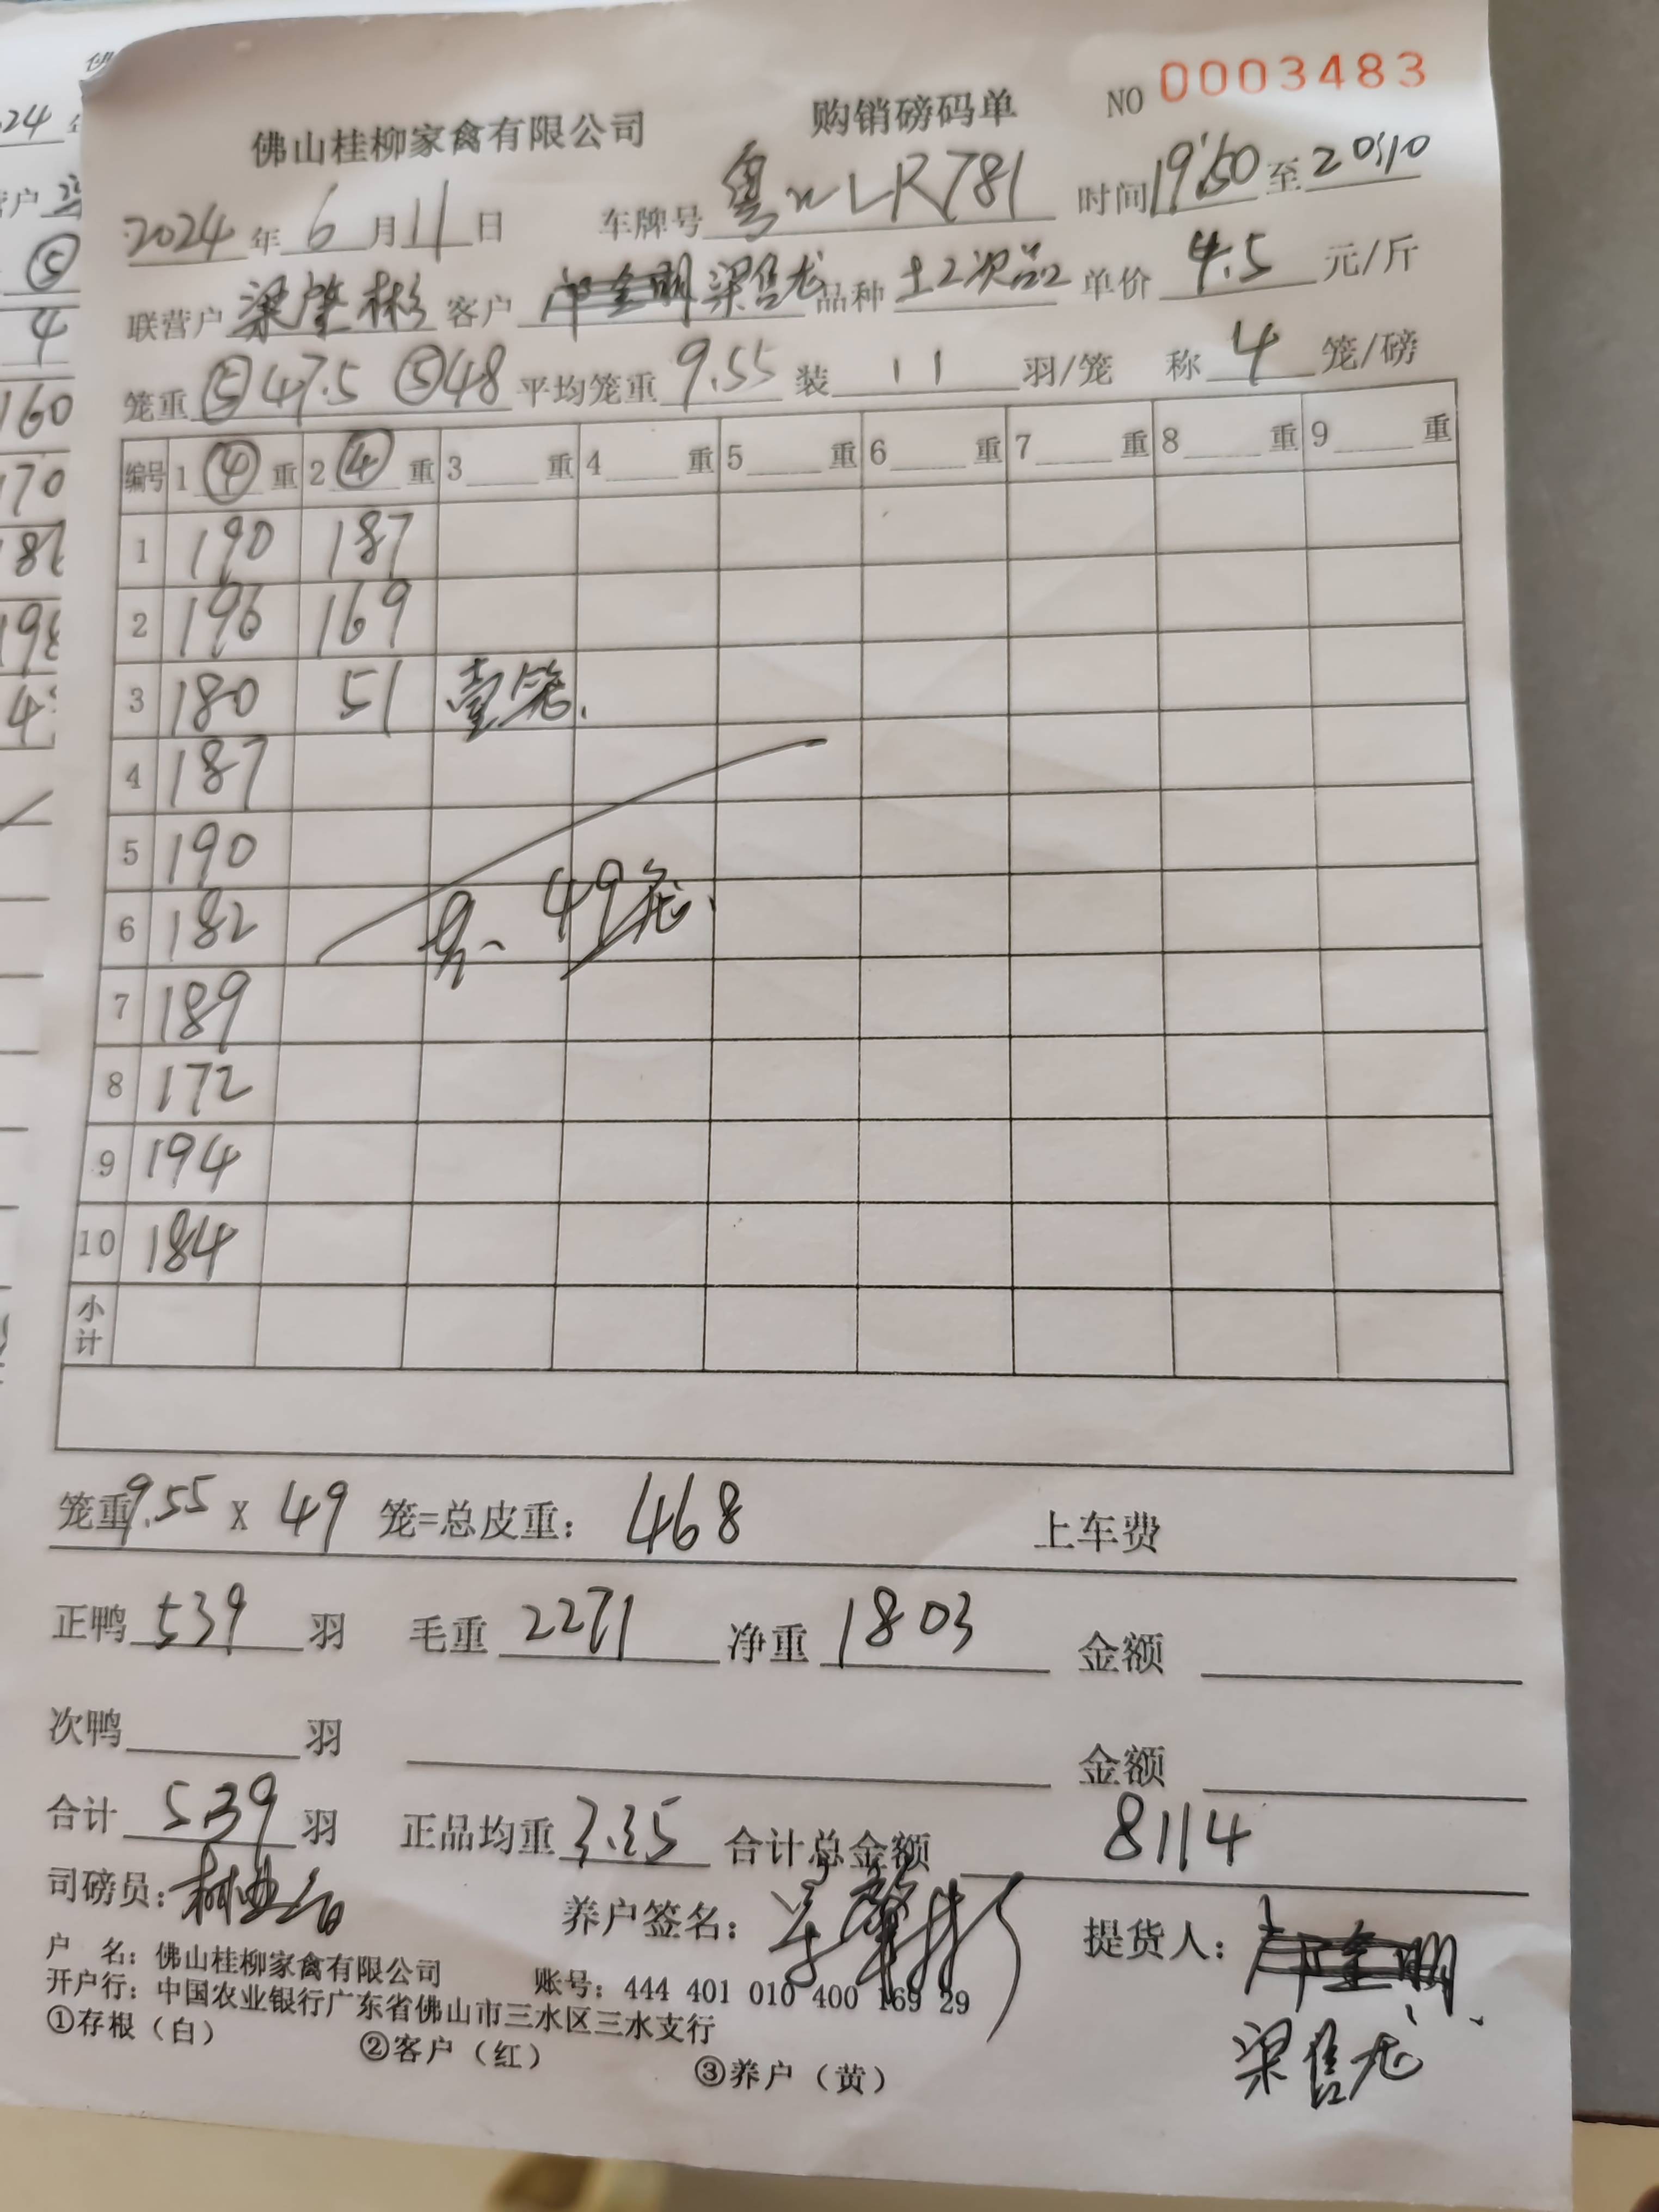 佛山桂柳家禽有限公司 购销磅码单 NO 0003483
2024 年 6 月 11 日 车牌号 粤 LR781 时间 19:50 至 20:10
联营户 梁肇彬 客户 梁售龙 品种 土2次品 单价 4.5 元/斤
笼重 ⑤47.5 ⑤48 平均笼重 9.55 装 11 羽/笼 称 4 笼/磅
编号 1 ④ 重 2 ④ 重 3 重 4 重 5 重 6 重 7 重 8 重 9 重
1 190 187
2 196 169
3 180 51 壹笼.
4 187
5 190
6 182 49笼.
7 189
8 172
9 194
10 184
小计
笼重 9.55 X 49 笼=总皮重: 468 上车费
正鸭 539 羽 毛重 2271 净重 1803 金额
次鸭 羽 金额
合计 539 羽 正品均重 3.35 合计总金额 8114
司磅员: 养户签名: 提货人:
梁售龙
户 名: 佛山桂柳家禽有限公司 账号: 444 401 010 400 169 29
开户行: 中国农业银行广东省佛山市三水区三水支行
①存根（白） ②客户（红） ③养户（黄）
24
⑤
4
160
170